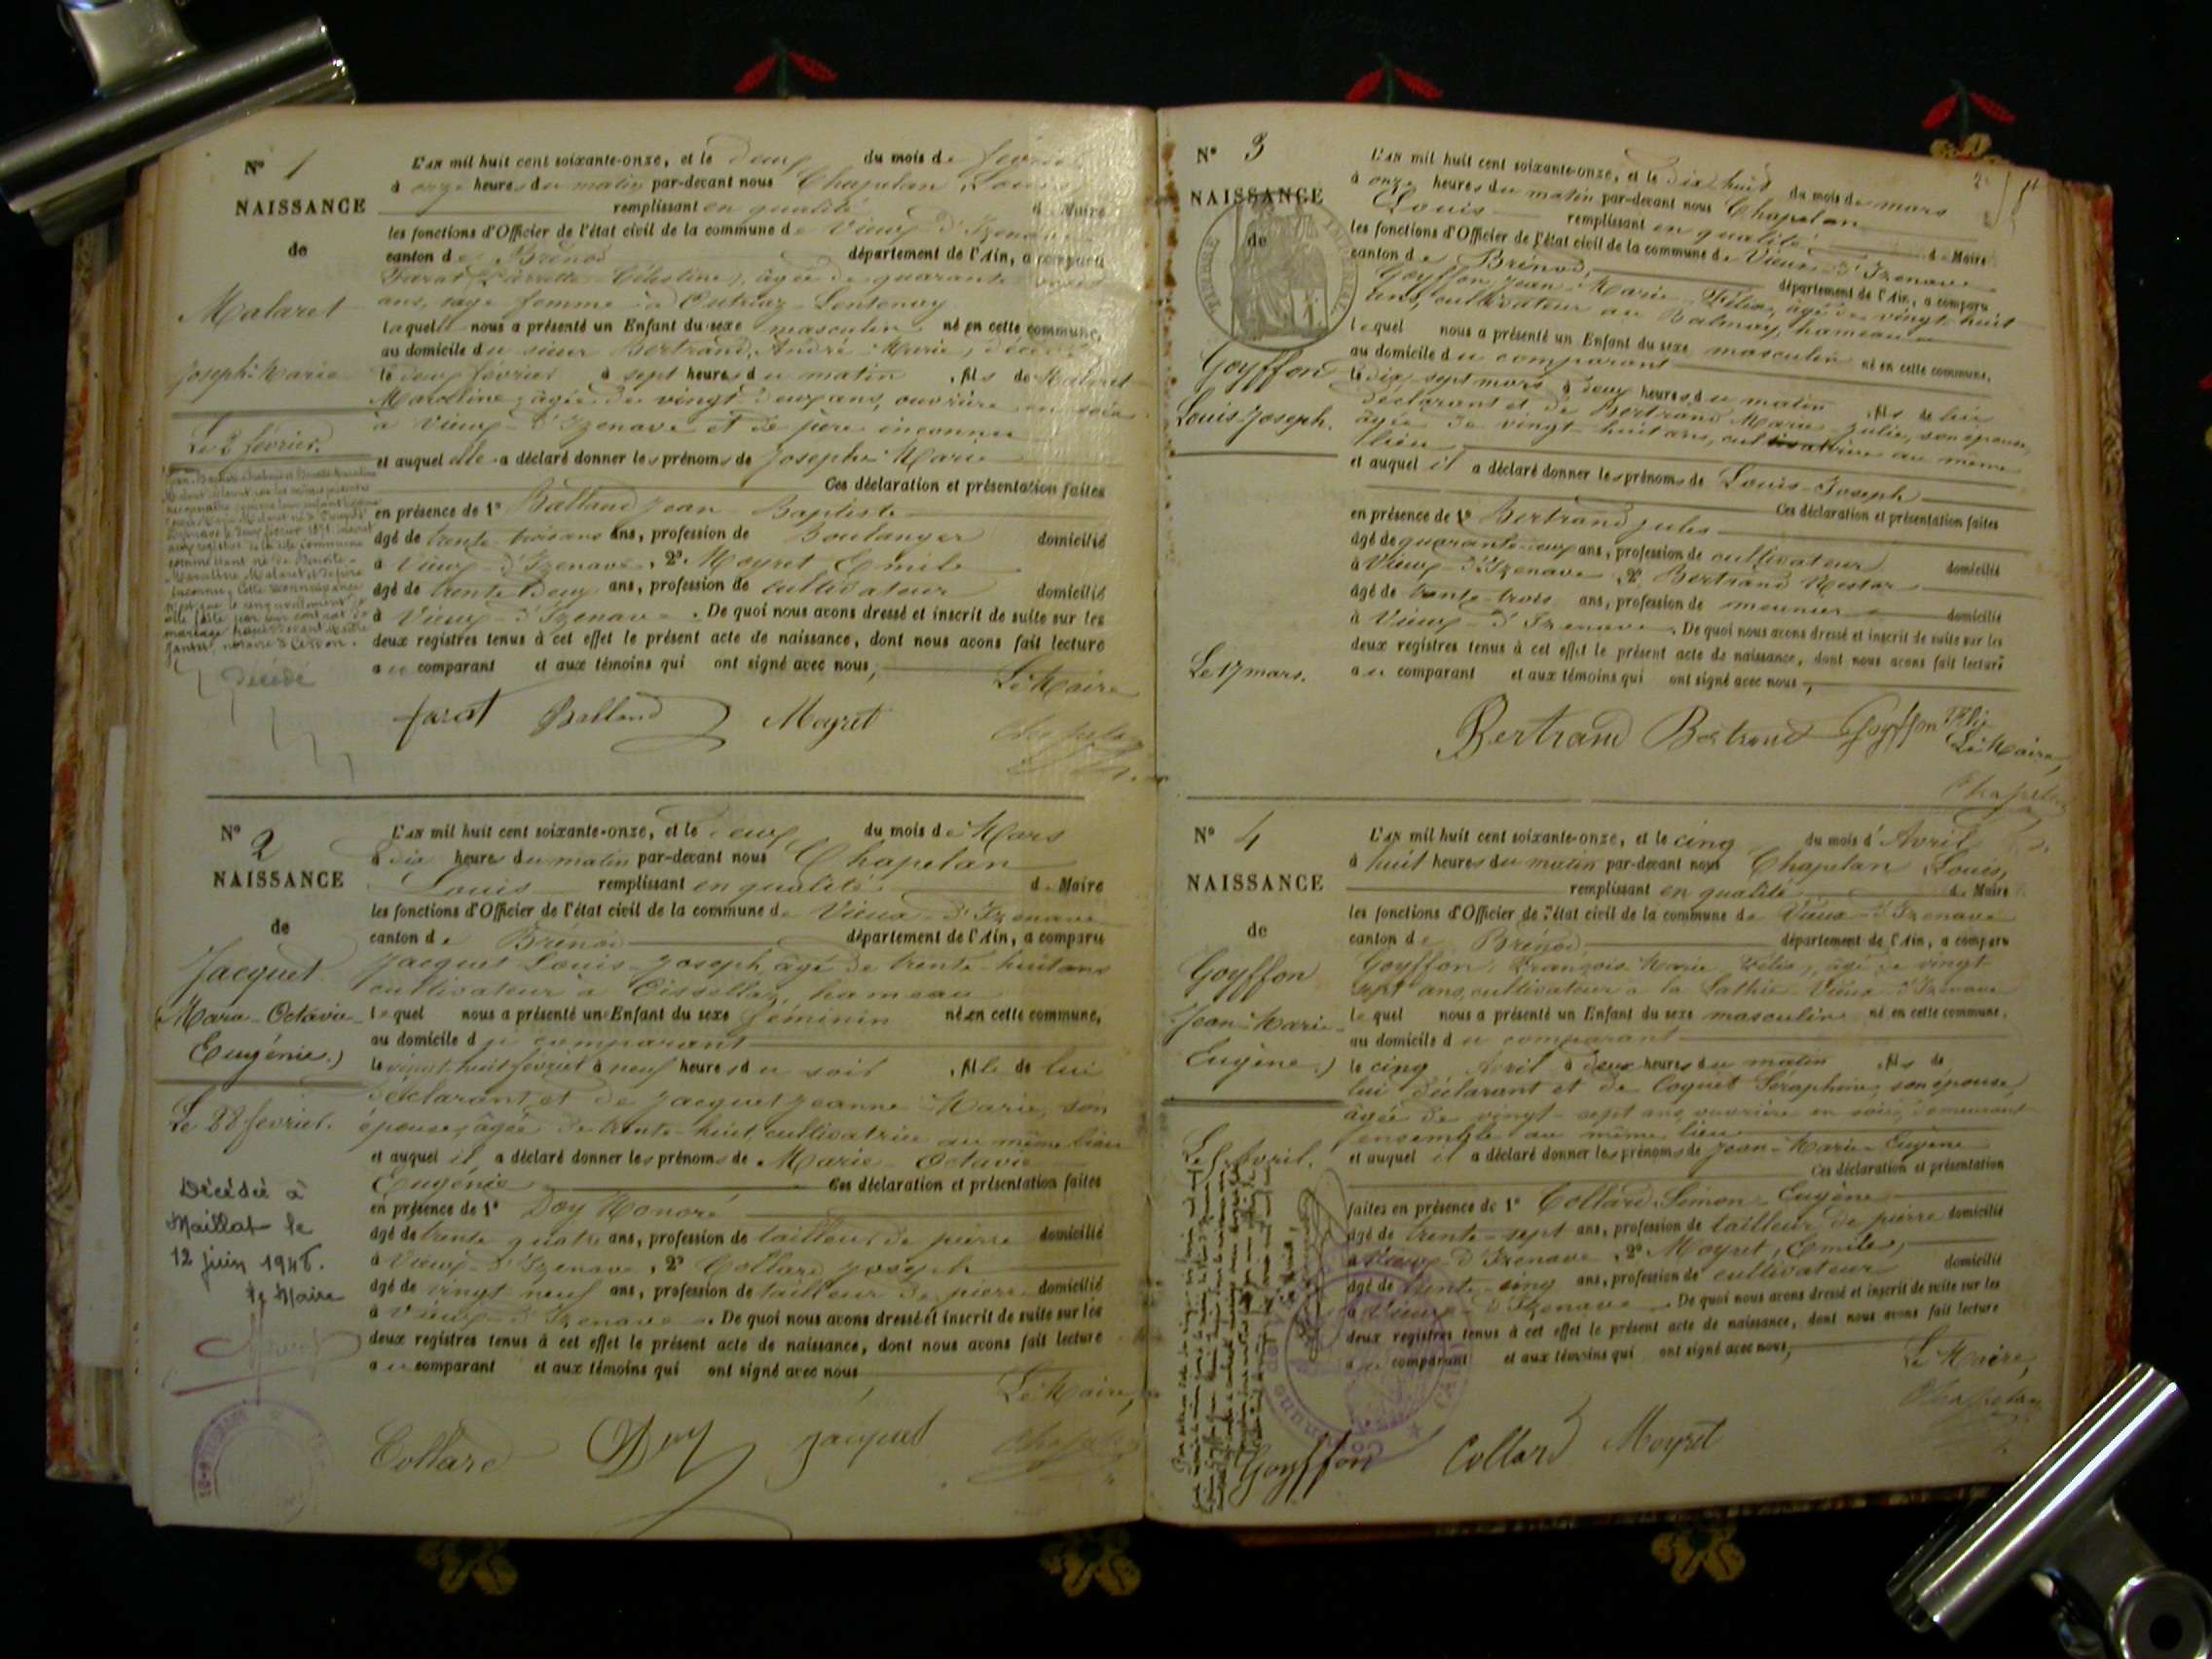 N° 1
NAISSANCE
de
Malaret
Joseph-Marie
Le 2 février.
Décédé
L'AN mil huit cent soixante-onze, et le deux du mois de février
à onze heures du matin par-devant nous Chapelan Louis
remplissant en qualité de Maire
les fonctions d'Officier de l'état civil de la commune de Vieux-d'Izenave
canton de Brénod département de l'Ain, a comparu
âgée de quarante
ans, sage femme à Outriaz-Lentenay
laquelle nous a présenté un Enfant du sexe masculin né en cette commune,
au domicile du sieur Bertrand, André-Marie,
le deux février à sept heures du matin, fils de Malaret
Marceline, âgée de vingt deux ans, ouvrière en soie
à Vieux-d'Izenave et de père inconnu
et auquel elle a déclaré donner les prénoms de Joseph-Marie
Ces déclaration et présentation faites
en présence de 1° Balland Jean-Baptiste
âgé de trente-trois ans ans, profession de Boulanger domicilié
à Vieux-d'Izenave, 2° Moyret Emile
âgé de trente deux ans, profession de cultivateur domicilié
à Vieux-d'Izenave. De quoi nous avons dressé et inscrit de suite sur les
deux registres tenus à cet effet le présent acte de naissance, dont nous avons fait lecture
au comparant et aux témoins qui ont signé avec nous,
Le Maire
Balland Moyret
Chapelan
N° 2
NAISSANCE
de
Jacquet
(Marie-Octavie
Eugénie.)
Le 28 février.
Décédée à
Maillat le
12 juin 1948.
Le Maire
L'AN mil huit cent soixante-onze, et le deux du mois de Mars
à dix heures du matin par-devant nous Chapelan
Louis remplissant en qualité de Maire
les fonctions d'Officier de l'état civil de la commune de Vieux-d'Izenave
canton de Brénod département de l'Ain, a comparu
Jacquet Louis-Joseph âgé de trente-huit ans
cultivateur à Cissellaz, hameau
lequel nous a présenté un Enfant du sexe féminin né en cette commune,
au domicile du comparant
le vingt-huit février à neuf heures du soir, fille de lui
déclarant, et de Jacquet Jeanne-Marie, son
épouse, âgée de trente-huit, cultivatrice au même lieu
et auquel il a déclaré donner les prénoms de Marie-Octavie
Eugénie Ces déclaration et présentation faites
en présence de 1° Doy Honoré
âgé de trente quatre ans, profession de tailleur de pierre domicilié
à Vieux-d'Izenave, 2° Collard Joseph
âgé de vingt neuf ans, profession de tailleur de pierre domicilié
à Vieux-d'Izenave. De quoi nous avons dressé et inscrit de suite sur les
deux registres tenus à cet effet le présent acte de naissance, dont nous avons fait lecture
au comparant et aux témoins qui ont signé avec nous
Le Maire,
Collard Doy Jacquet
Chapelan
N° 3
NAISSANCE
de
TIMBRE IMPÉRIAL
Goyffon
Louis-Joseph.
Le 17 mars.
L'AN mil huit cent soixante-onze, et le dix huit du mois de mars
à onze heures du matin par-devant nous Chapelan
Louis remplissant en qualité de Maire
les fonctions d'Officier de l'état civil de la commune de Vieux-d'Izenave
canton de Brénod, département de l'Ain, a comparu
Goyffon Jean-Marie-Félix, âgé de vingt huit
ans, cultivateur au Balmay, hameau
lequel nous a présenté un Enfant du sexe masculin né en cette commune,
au domicile du comparant
le dix sept mars à deux heures du matin, fils de lui
déclarant et de Bertrand Marie-Julie, son épouse,
âgée de vingt-huit ans, cultivatrice au même
lieu
et auquel il a déclaré donner les prénoms de Louis-Joseph
Ces déclaration et présentation faites
en présence de 1° Bertrand Jules
âgé de quarante-deux ans, profession de cultivateur domicilié
à Vieux-d'Izenave 2° Bertrand Nestor
âgé de trente-trois ans, profession de meunier domicilié
à Vieux-d'Izenave. De quoi nous avons dressé et inscrit de suite sur les
deux registres tenus à cet effet le présent acte de naissance, dont nous avons fait lecture
au comparant et aux témoins qui ont signé avec nous,
Bertrand Bertrand Goyffon Félix
Le Maire,
Chapelan
N° 4
NAISSANCE
de
Goyffon
Jean-Marie-
Eugène.)
Le 5 Avril.
L'AN mil huit cent soixante-onze, et le cinq du mois d'Avril
à huit heures du matin par-devant nous Chapelan Louis,
remplissant en qualité de Maire
les fonctions d'Officier de l'état civil de la commune de Vieux-d'Izenave
canton de Brénod département de l'Ain, a comparu
Goyffon, François-Marie-Félix, âgé de vingt
sept ans, cultivateur à la Vieux-d'Izenave
lequel nous a présenté un Enfant du sexe masculin né en cette commune,
au domicile du comparant
le cinq Avril à deux heures du matin, fils de
lui déclarant et de Coquet Séraphine, son épouse,
âgée de vingt-sept ans, ouvrière en soie, demeurant
ensemble au même lieu
et auquel il a déclaré donner les prénoms de Jean-Marie-Eugène
Ces déclaration et présentation
faites en présence de 1° Collard Simon-Eugène
âgé de trente-sept ans, profession de tailleur de pierre domicilié
à Vieux-d'Izenave, 2° Moyret, Emile,
âgé de trente-cinq ans, profession de cultivateur domicilié
à Vieux-d'Izenave. De quoi nous avons dressé et inscrit de suite sur les
deux registres tenus à cet effet le présent acte de naissance, dont nous avons fait lecture
au comparant et aux témoins qui ont signé avec nous,
Le Maire,
Chapelan
Goyffon Collard Moyret